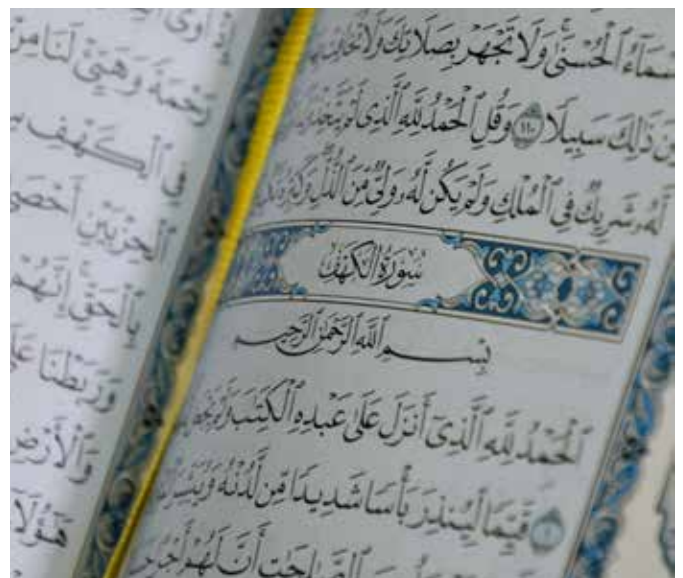 سْمَآءُ ٱلْحُسْنَىٰ وَلَا تَجْهَرْ بِصَلَاتِكَ وَلَا تُخَافِتْ بِهَا
بَيْنَ ذَٰلِكَ سَبِيلًا ١١٠ وَقُلِ ٱلْحَمْدُ لِلَّهِ ٱلَّذِى لَمْ يَتَّخِذْ
لَّهُۥ شَرِيكٌ فِى ٱلْمُلْكِ وَلَمْ يَكُن لَّهُۥ وَلِىٌّ مِّنَ ٱلذُّلِّ وَكَبِّرْهُ
سُورَةُ الكَهْفِ
بِسْمِ ٱللَّهِ ٱلرَّحْمَٰنِ ٱلرَّحِيمِ
ٱلْحَمْدُ لِلَّهِ ٱلَّذِىٓ أَنزَلَ عَلَىٰ عَبْدِهِ ٱلْكِتَٰبَ وَلَمْ يَجْعَل
١ قَيِّمًا لِّيُنذِرَ بَأْسًا شَدِيدًا مِّن لَّدُنْهُ وَيُبَشِّرَ
ٱلصَّٰلِحَٰتِ أَنَّ لَهُمْ أَجْرًا
أَوَى
رَحْمَةً وَهَيِّئْ لَنَا مِنْ
فِى ٱلْكَهْفِ
ٱلْحِزْبَيْنِ أَحْصَىٰ
بِٱلْحَقِّ إِنَّهُمْ
وَرَبَطْنَا عَلَىٰ
وَٱلْأَرْضِ
هَٰٓؤُلَآءِ